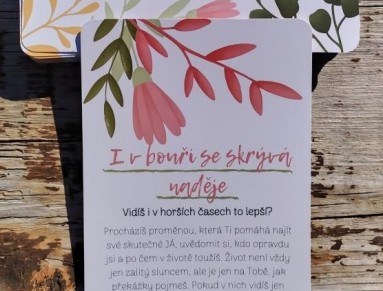 I v bouři se skrývá
naděje
Vidíš i v horších časech to lepší?
Procházíš proměnou, která Ti pomáhá najít
své skutečné JÁ, uvědomit si, kdo opravdu
jsi a po čem v životě toužíš. Život není vždy
jen zalitý sluncem, ale je jen na Tobě, jak
překážky pojmeš. Pokud v nich vidíš jen